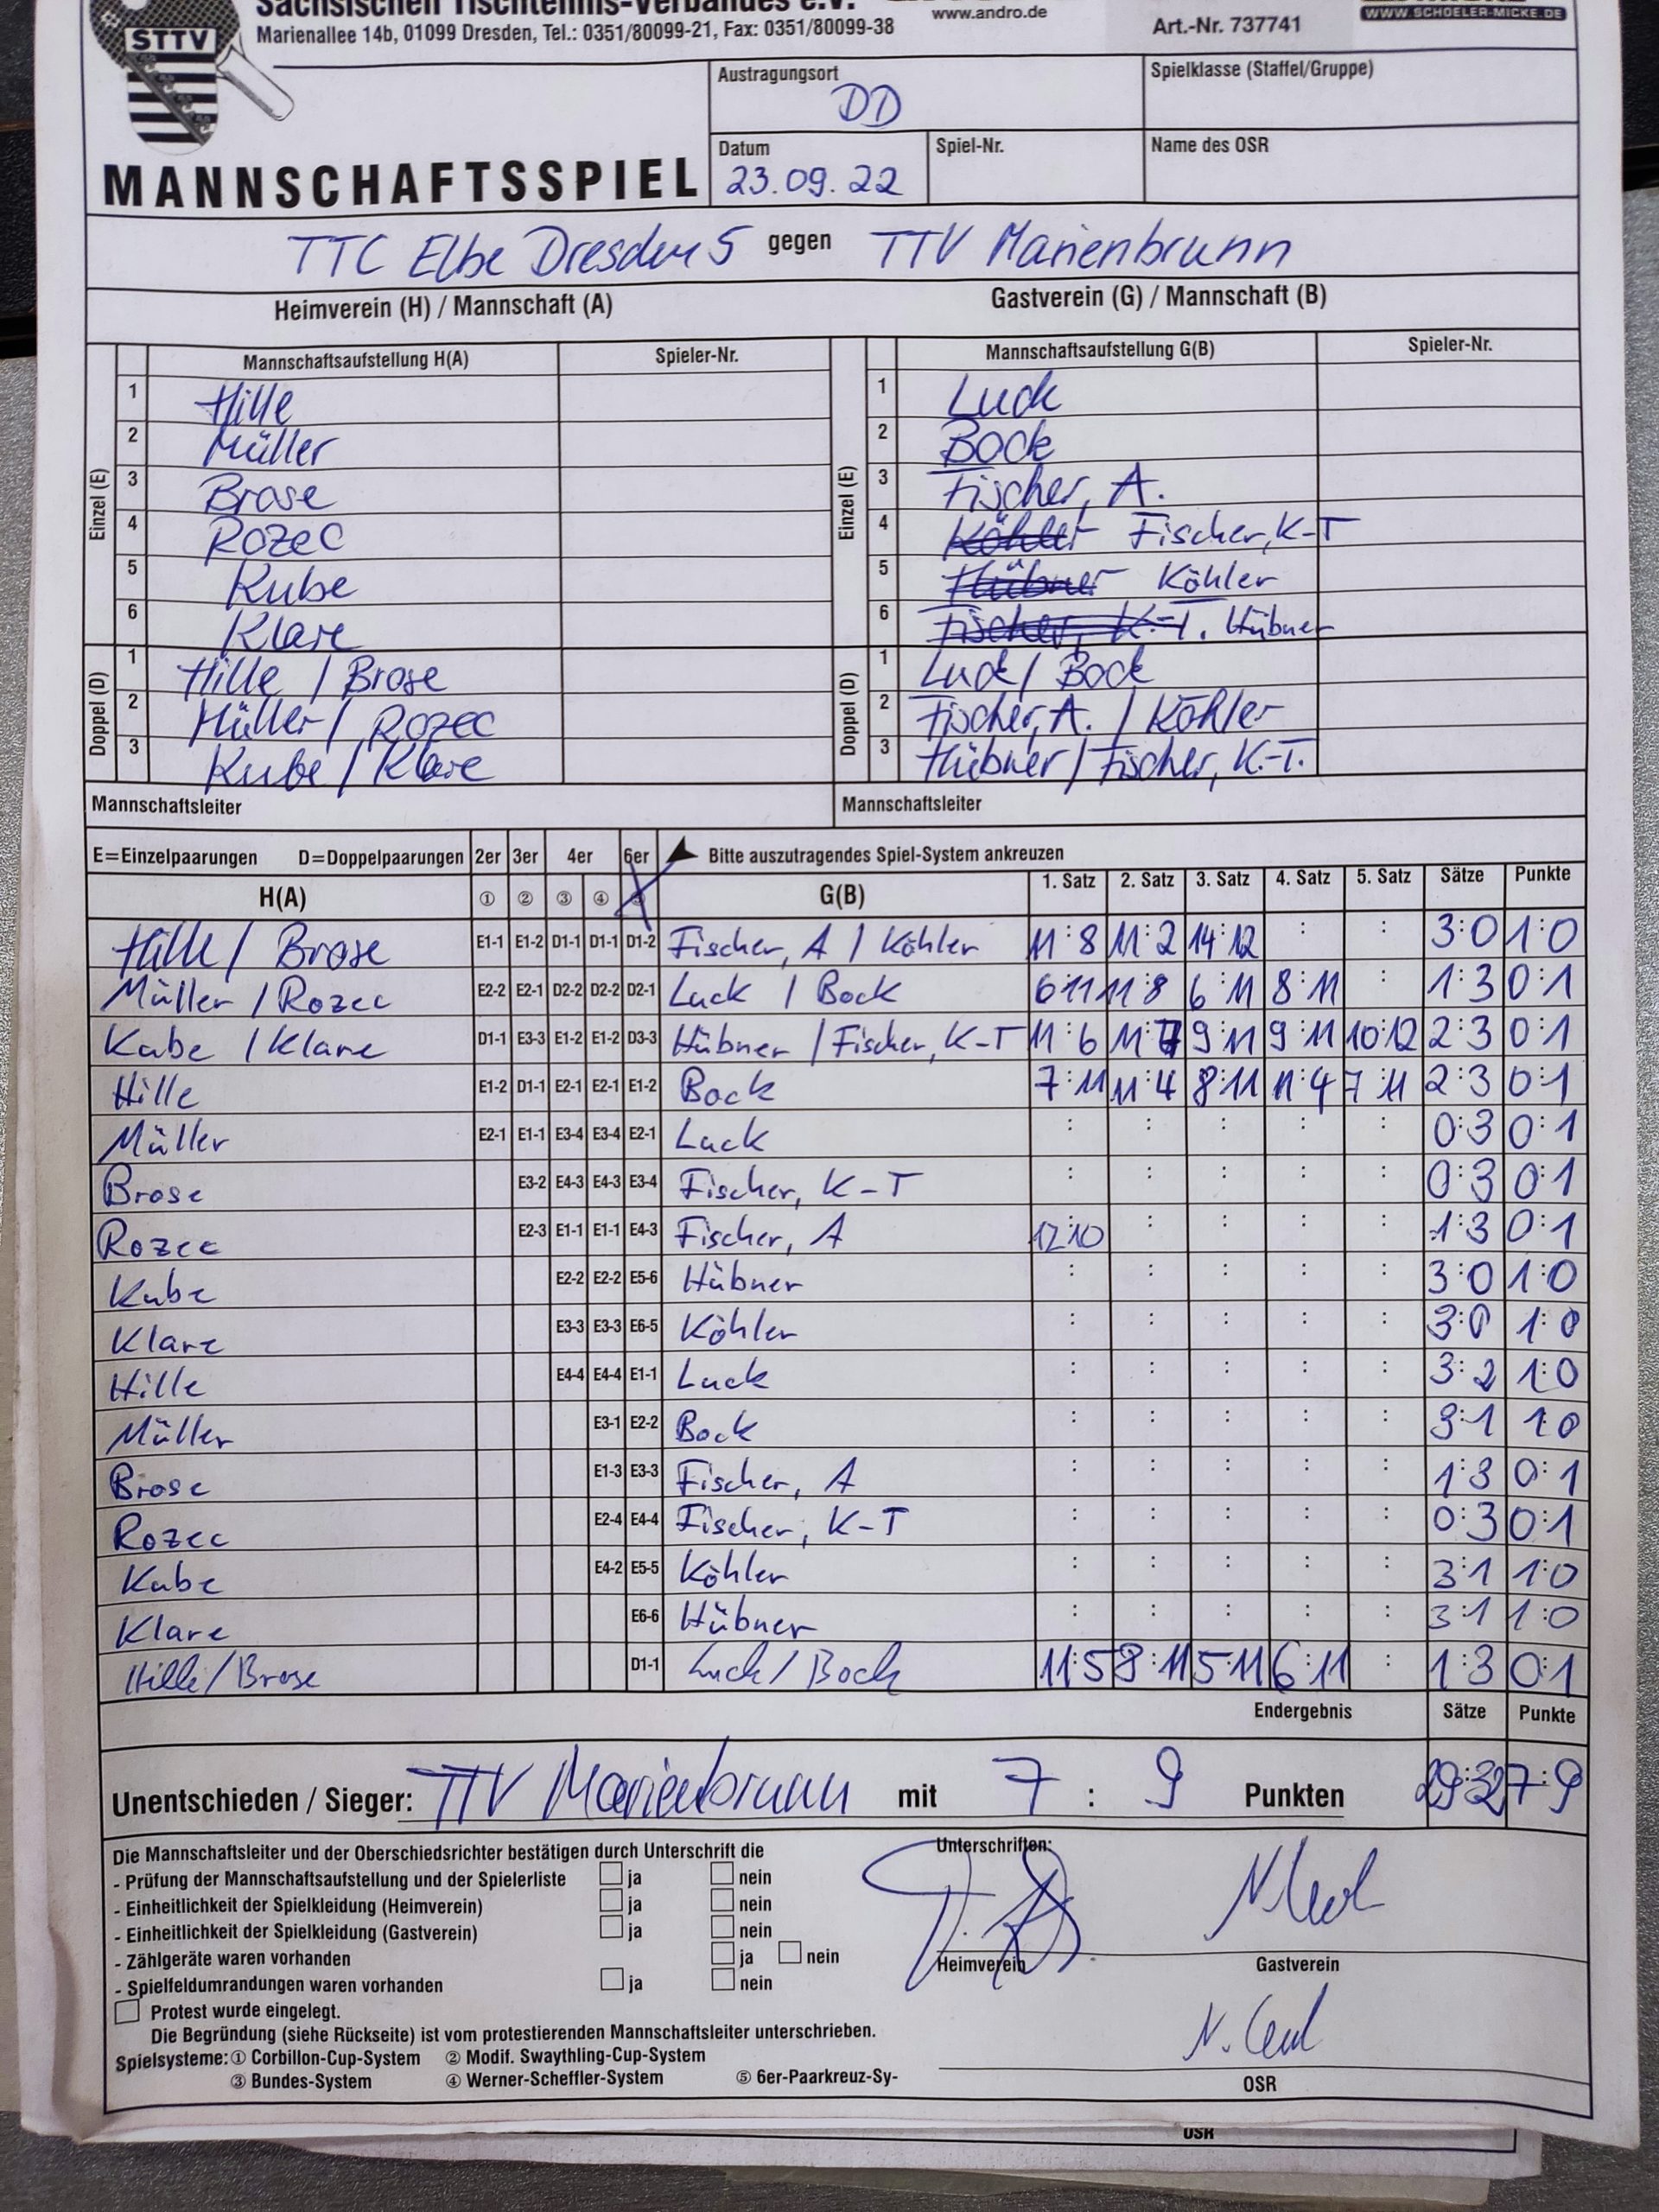 Sächsischen Tischtennis-Verbandes e.V.
www.andro.de
Art.-Nr. 737741
WWW.SCHOELER-MICKE.DE
STTV
Marienallee 14b, 01099 Dresden, Tel.: 0351/80099-21, Fax: 0351/80099-38
Austragungsort
DD
Spielklasse (Staffel/Gruppe)
MANNSCHAFTSSPIEL
Datum
23.09.22
Spiel-Nr.
Name des OSR
TTC Elbe Dresden 5 gegen TTV Marienbrunn
Heimverein (H) / Mannschaft (A) Gastverein (G) / Mannschaft (B)
Mannschaftsaufstellung H(A) Spieler-Nr. Mannschaftsaufstellung G(B) Spieler-Nr.
Einzel (E) Einzel (E)
1 Hille 1 Luck
2 Müller 2 Bock
3 Brose 3 Fischer, A.
4 Rozec 4 Köhler Fischer, K-T
5 Kube 5 Hübner Köhler
6 Klare 6 Fischer, K.-T. Hübner
Doppel (D) Doppel (D)
1 Hille / Brose 1 Luck / Bock
2 Müller / Rozec 2 Fischer, A. / Köhler
3 Kube / Klare 3 Hübner / Fischer, K.-T.
Mannschaftsleiter Mannschaftsleiter
E=Einzelpaarungen D=Doppelpaarungen 2er 3er 4er 6er Bitte auszutragendes Spiel-System ankreuzen
H(A) ① ② ③ ④ G(B) 1. Satz 2. Satz 3. Satz 4. Satz 5. Satz Sätze Punkte
Hille / Brose E1-1 E1-2 D1-1 D1-1 D1-2 Fischer, A / Köhler 11:8 11:2 14:12 : : 3:0 1:0
Müller / Rozec E2-2 E2-1 D2-2 D2-2 D2-1 Luck / Bock 6:11 11:8 6:11 8:11 : 1:3 0:1
Kube / Klare D1-1 E3-3 E1-2 E1-2 D3-3 Hübner / Fischer, K-T 11:6 11: 9:11 9:11 10:12 2:3 0:1
Hille E1-2 D1-1 E2-1 E2-1 E1-2 Bock 7:11 11:4 8:11 11:4 7:11 2:3 0:1
Müller E2-1 E1-1 E3-4 E3-4 E2-1 Luck : : : : : 0:3 0:1
Brose E3-2 E4-3 E4-3 E3-4 Fischer, K-T : : : : : 0:3 0:1
Rozec E2-3 E1-1 E1-1 E4-3 Fischer, A 12:10 : : : : 1:3 0:1
Kube E2-2 E2-2 E5-6 Hübner : : : : : 3:0 1:0
Klare E3-3 E3-3 E6-5 Köhler : : : : : 3:0 1:0
Hille E4-4 E4-4 E1-1 Luck : : : : : 3:2 1:0
Müller E3-1 E2-2 Bock : : : : : 3:1 1:0
Brose E1-3 E3-3 Fischer, A : : : : : 1:3 0:1
Rozec E2-4 E4-4 Fischer, K-T : : : : : 0:3 0:1
Kube E4-2 E5-5 Köhler : : : : : 3:1 1:0
Klare E6-6 Hübner : : : : : 3:1 1:0
Hille / Brose D1-1 Luck / Bock 11:5 8:11 5:11 6:11 : 1:3 0:1
Endergebnis Sätze Punkte
Unentschieden / Sieger: TTV Marienbrunn mit 7 : 9 Punkten 29:32 7:9
Die Mannschaftsleiter und der Oberschiedsrichter bestätigen durch Unterschrift die Unterschriften:
- Prüfung der Mannschaftsaufstellung und der Spielerliste ja nein
- Einheitlichkeit der Spielkleidung (Heimverein) ja nein
- Einheitlichkeit der Spielkleidung (Gastverein) ja nein
- Zählgeräte waren vorhanden ja nein
Heimverein Gastverein
- Spielfeldumrandungen waren vorhanden ja nein
Protest wurde eingelegt.
Die Begründung (siehe Rückseite) ist vom protestierenden Mannschaftsleiter unterschrieben.
Spielsysteme: ① Corbillon-Cup-System ② Modif. Swaythling-Cup-System
③ Bundes-System ④ Werner-Scheffler-System ⑤ 6er-Paarkreuz-Sy-
OSR
OSR